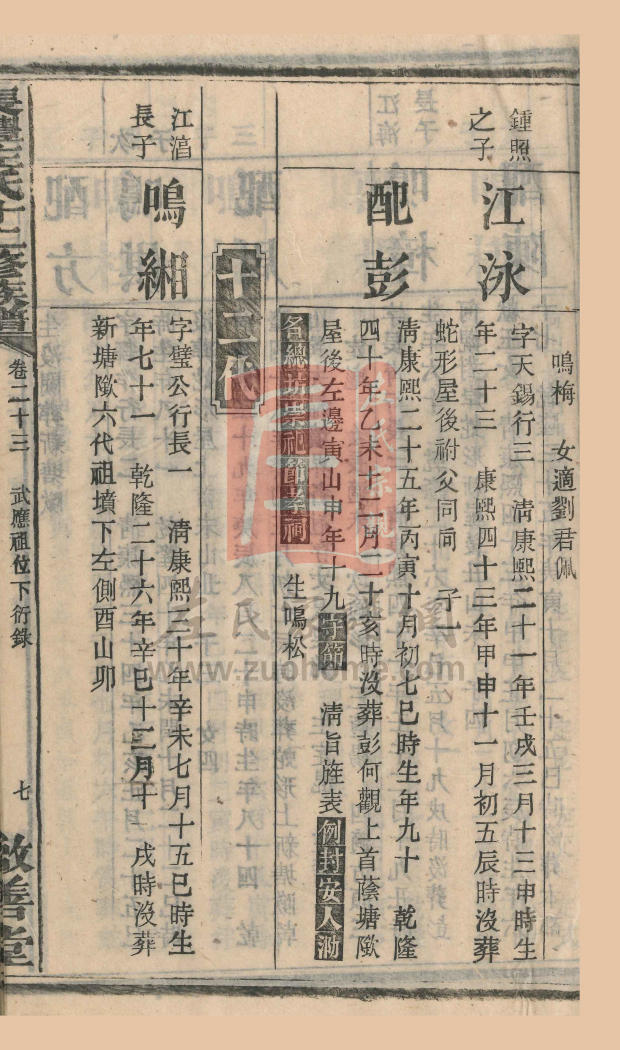 鳴梅　女適劉君佩
鍾照
之子
江泳
字天錫行三　淸康熙二十一年壬戌三月十三申時生
年二十三　康熙四十三年甲申十一月初五辰時沒葬
蛇形屋後祔父同同　子一
配彭
淸康熙二十五年丙寅十月初七巳時生年九十　乾隆
四十年乙未十二月二十亥時沒葬彭何觀上首蔭塘墩
屋後左邊寅山申年十九守節　淸旨旌表例封安人泐
名總坊崇祀節孝祠　生鳴松
十二代
江湻
長子
鳴緗
字璧公行長一　淸康熙三十年辛未七月十五巳時生
年七十一　乾隆二十六年辛巳十二月十　戌時沒葬
新塘墩六代祖墳下左側酉山卯
左氏十二修族譜
卷二十三　武應祖位下衍錄
七
敦善堂
左氏家祠
www.zuohome.com